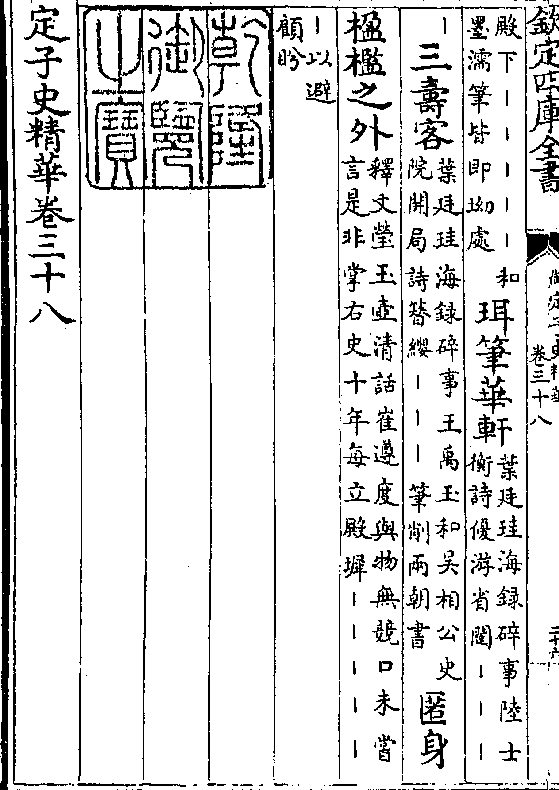 欽定四庫全書
御定子史精華
卷三十八
二十六
殿下｜｜｜｜｜和
墨濡筆皆即坳處
珥筆華軒
葉廷珪海録碎事陸士
衡詩優游省闥｜｜｜
｜
三壽客
葉廷珪海録碎事王禹玉和吳相公史
院開局詩簪纓｜｜｜筆削兩朝書
匿身
楹檻之外
釋文瑩玉壺清話崔遵度與物無競口未嘗
言是非掌右史十年每立殿墀｜｜｜｜｜
｜以避
顧盼
乾隆
御覽
之寶
定子史精華卷三十八